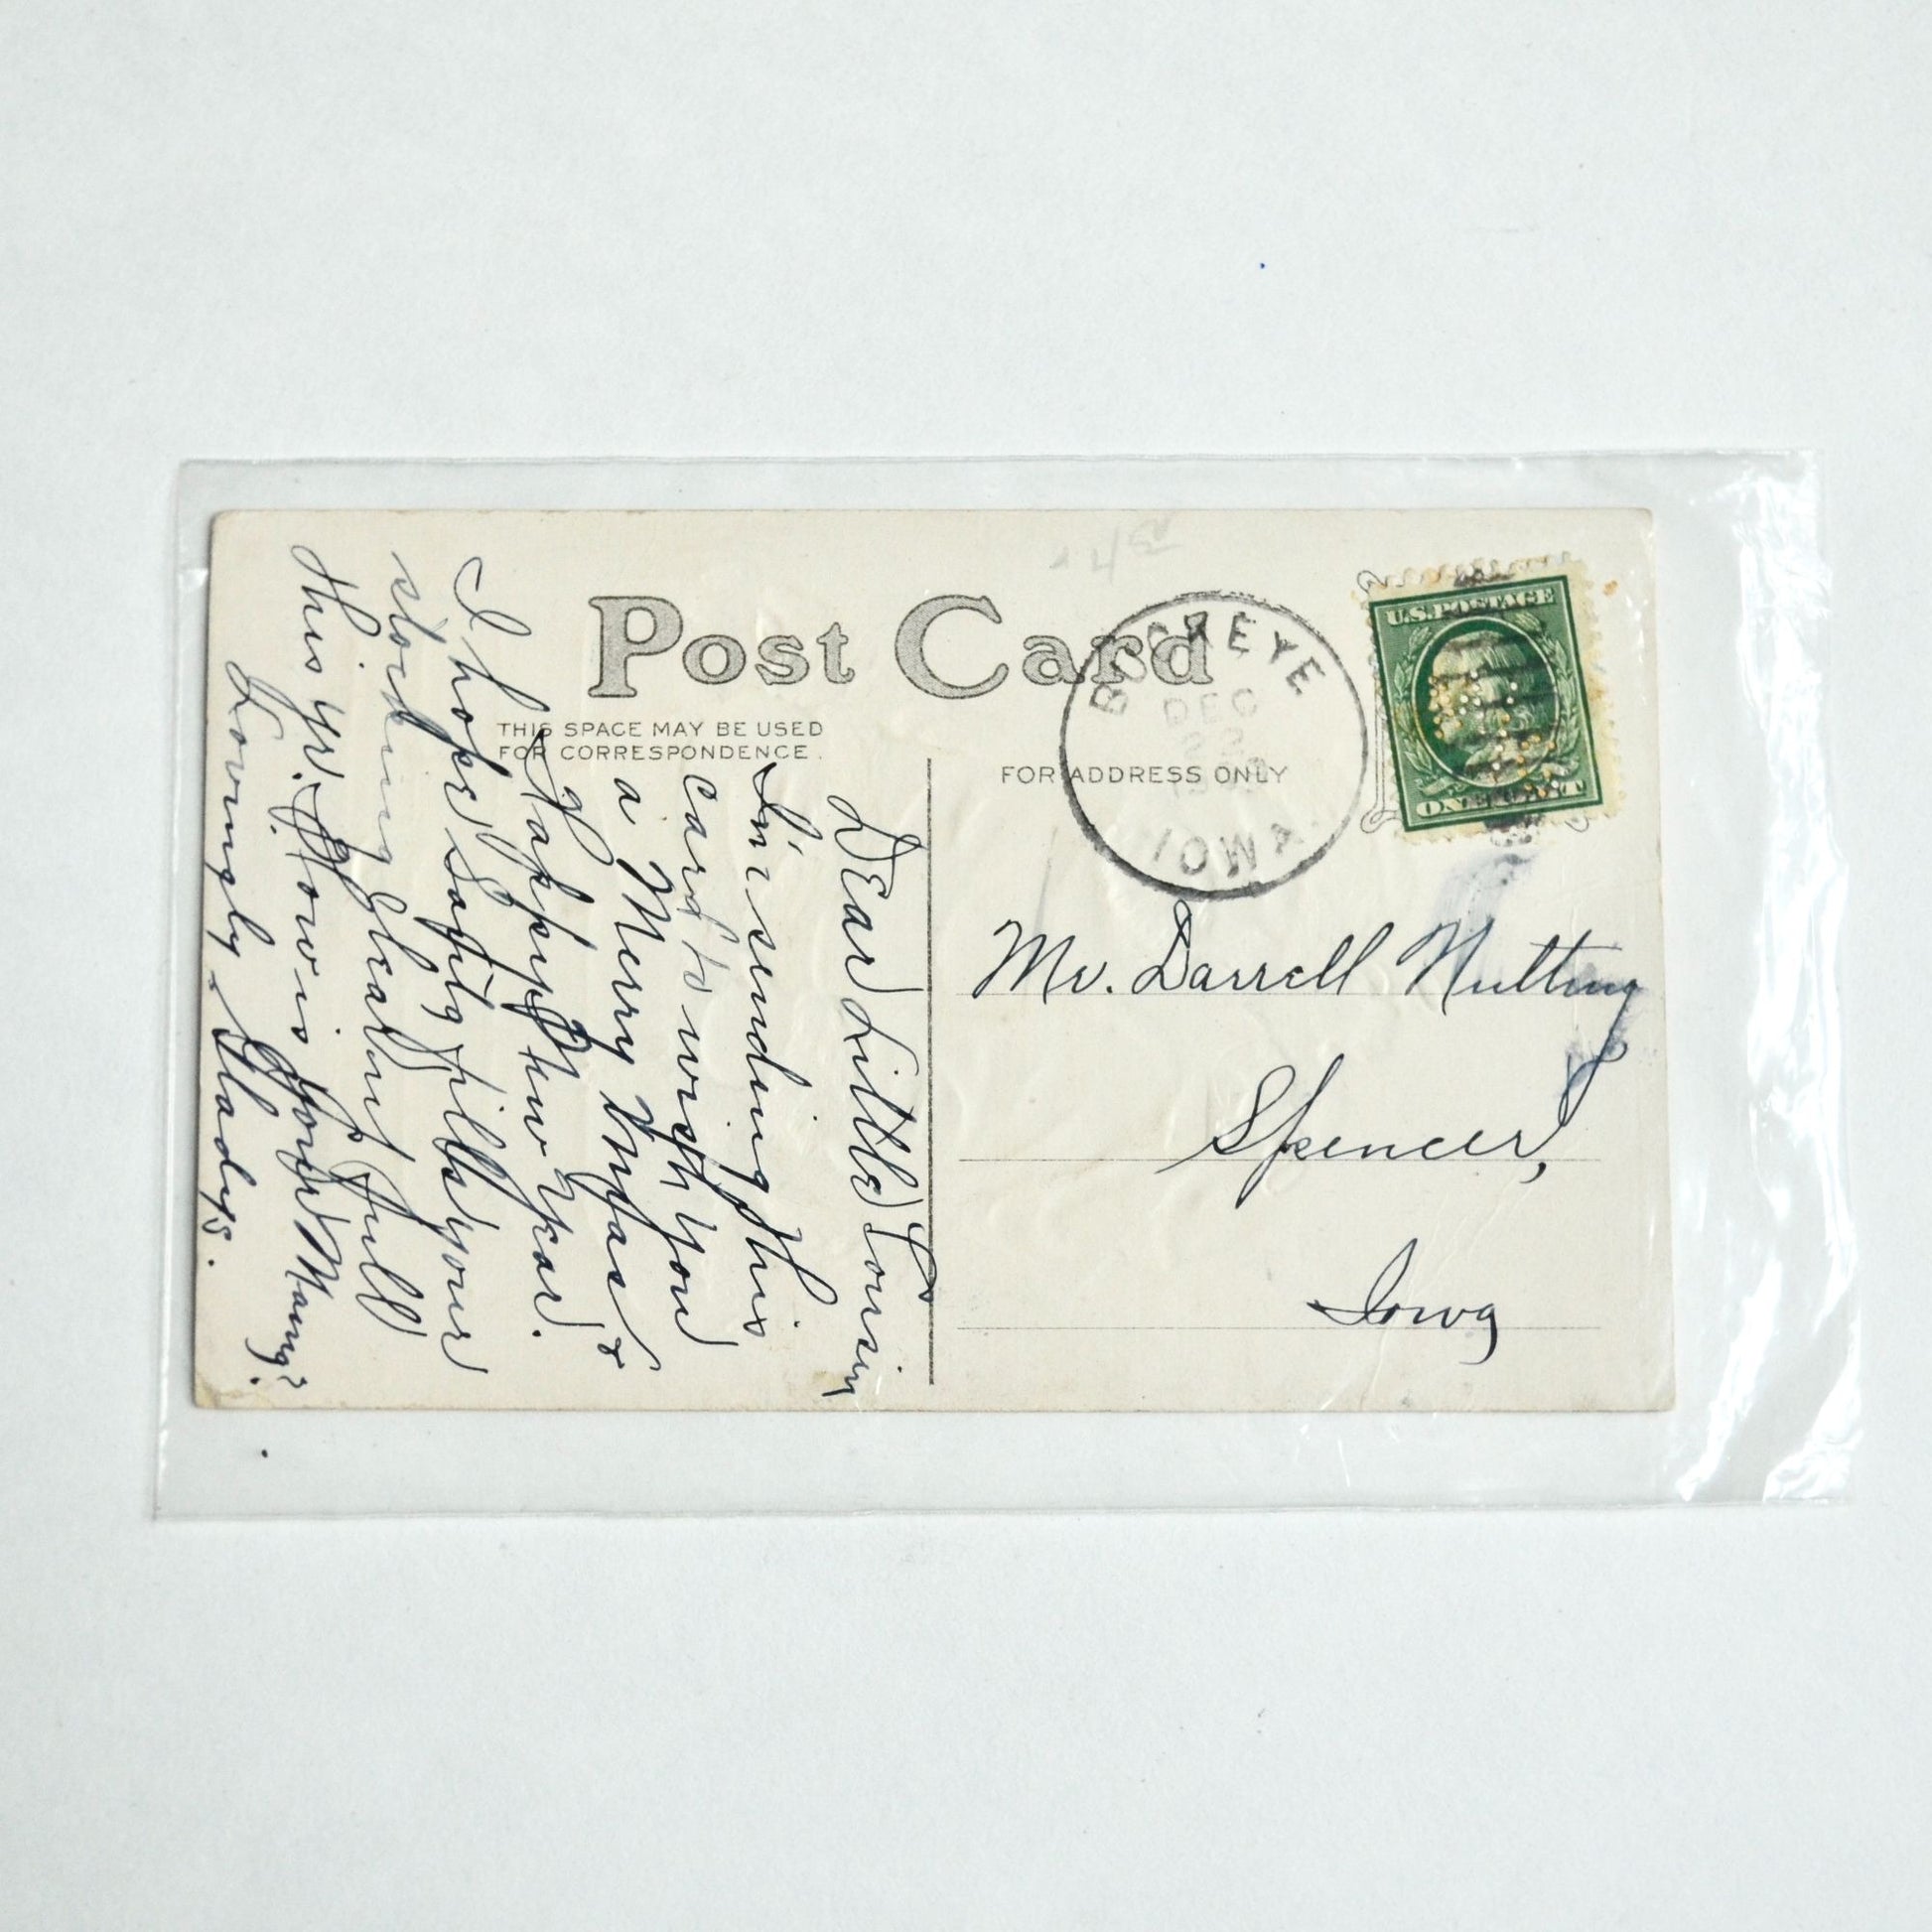 Post Card
THIS SPACE MAY BE USED
FOR CORRESPONDENCE.
FOR ADDRESS ONLY
BUCKEYE
DEC
22
IOWA
U.S. POSTAGE
ONE CENT
Mr. Darrell Nutting
Spencer,
Iowa
Dear Little Cousin
I'm sending this
card to wish you
a Merry Xmas &
Happy New Year.
I hope Santa fills your
stocking clear full
this yr. How is your Mama?
Lovingly Gladys.